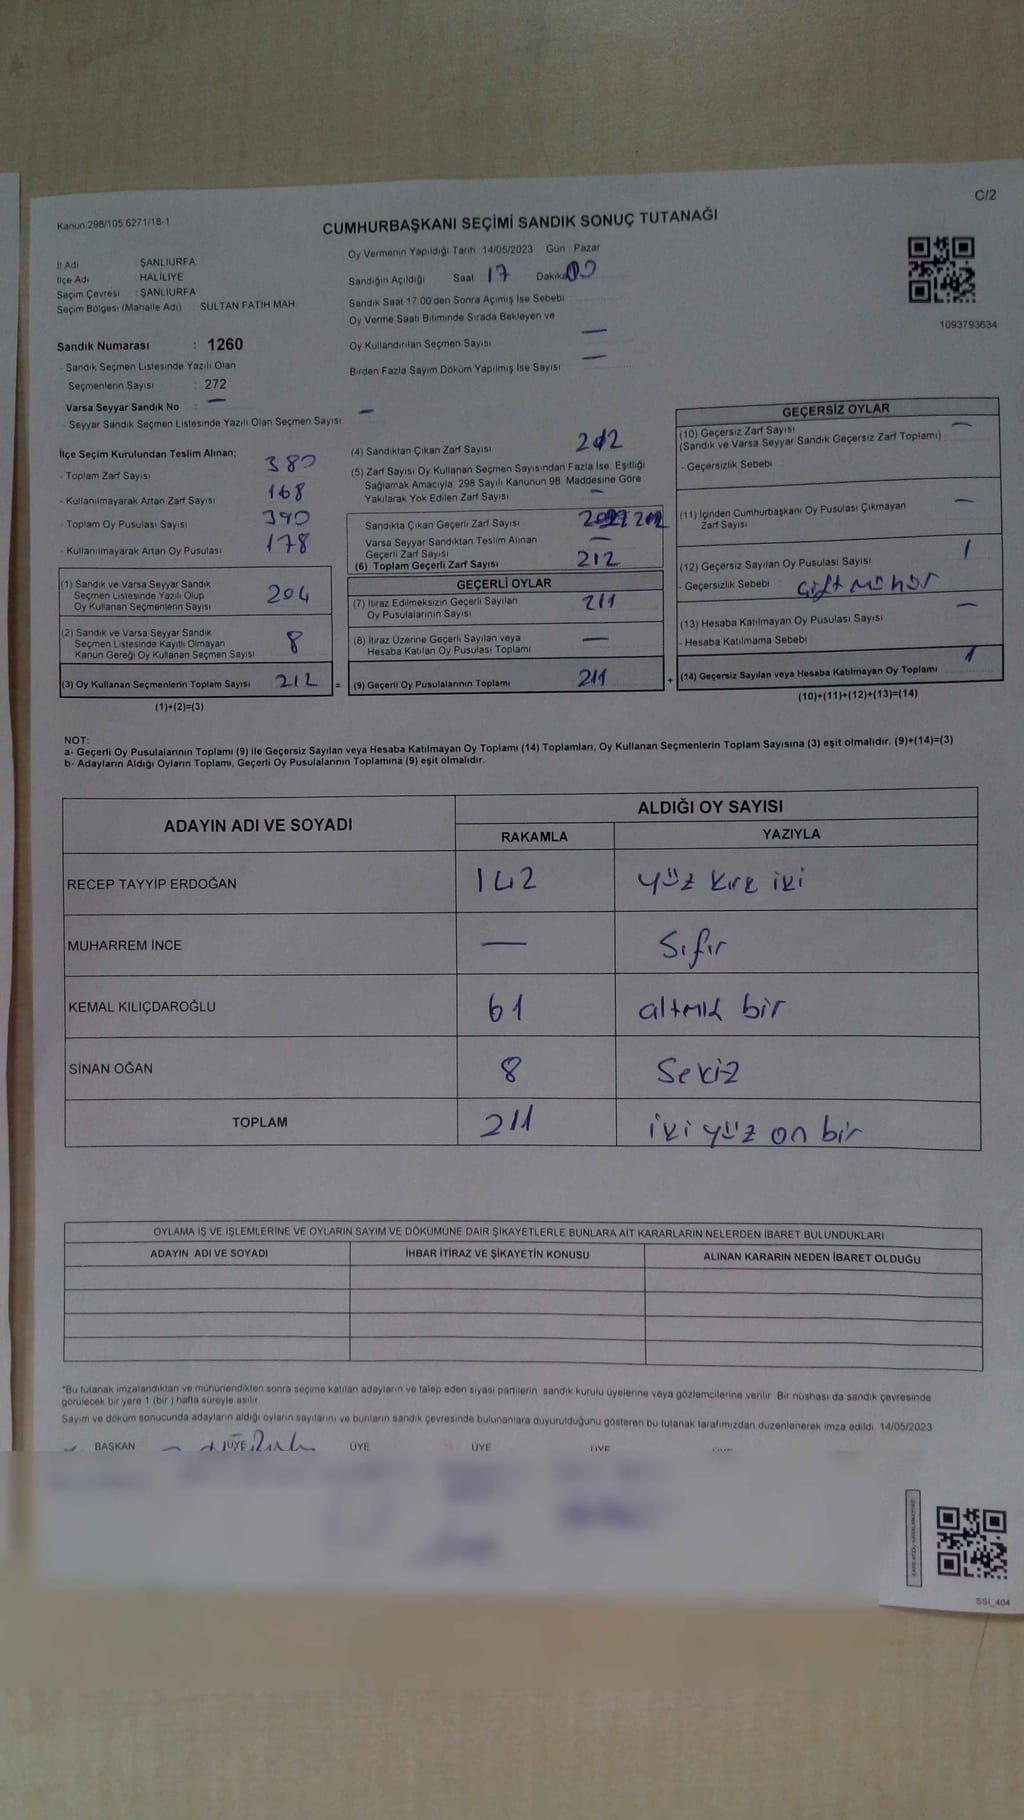 C/2
Kanun 298/105 6271/18-1
CUMHURBAŞKANI SEÇİMİ SANDIK SONUÇ TUTANAĞI
İl Adı ŞANLIURFA
İlçe Adı HALİLİYE
Seçim Çevresi : ŞANLIURFA
Seçim Bölgesi (Mahalle Adı) SULTAN FATİH MAH
Oy Vermenin Yapıldığı Tarih : 14/05/2023 Gün : Pazar
Sandığın Açıldığı Saat 17 Dakika 00
Sandık Saat 17.00'den Sonra Açımış İse Sebebi
Oy Verme Saati Bitiminde Sırada Bekleyen ve
Oy Kullandırılan Seçmen Sayısı —
Birden Fazla Sayım Döküm Yapılmış İse Sayısı —
1093793634
Sandık Numarası : 1260
- Sandık Seçmen Listesinde Yazılı Olan
Seçmenlerin Sayısı : 272
Varsa Seyyar Sandık No : —
- Seyyar Sandık Seçmen Listesinde Yazılı Olan Seçmen Sayısı —
İlçe Seçim Kurulundan Teslim Alınan;
- Toplam Zarf Sayısı 380
- Kullanılmayarak Artan Zarf Sayısı 168
- Toplam Oy Pusulası Sayısı 390
- Kullanılmayarak Artan Oy Pusulası 178
(1) Sandık ve Varsa Seyyar Sandık
Seçmen Listesinde Yazılı Olup
Oy Kullanan Seçmenlerin Sayısı 204
(2) Sandık ve Varsa Seyyar Sandık
Seçmen Listesinde Kayıtlı Olmayan
Kanun Gereği Oy Kullanan Seçmen Sayısı 8
(3) Oy Kullanan Seçmenlerin Toplam Sayısı 212 =
(1)+(2)=(3)
(4) Sandıktan Çıkan Zarf Sayısı 212
(5) Zarf Sayısı Oy Kullanan Seçmen Sayısından Fazla İse, Eşitliği
Sağlamak Amacıyla, 298 Sayılı Kanunun 98. Maddesine Göre
Yakılarak Yok Edilen Zarf Sayısı —
Sandıkta Çıkan Geçerli Zarf Sayısı
Varsa Seyyar Sandıktan Teslim Alınan
Geçerli Zarf Sayısı —
(6) Toplam Geçerli Zarf Sayısı 212
GEÇERLİ OYLAR
(7) İtiraz Edilmeksizin Geçerli Sayılan
Oy Pusulalarının Sayısı 211
(8) İtiraz Üzerine Geçerli Sayılan veya
Hesaba Katılan Oy Pusulası Toplamı —
(9) Geçerli Oy Pusulalarının Toplamı 211 +
GEÇERSİZ OYLAR
(10) Geçersiz Zarf Sayısı —
(Sandık ve Varsa Seyyar Sandık Geçersiz Zarf Toplamı)
- Geçersizlik Sebebi
(11) İçinden Cumhurbaşkanı Oy Pusulası Çıkmayan
Zarf Sayısı —
(12) Geçersiz Sayılan Oy Pusulası Sayısı 1
- Geçersizlik Sebebi Çift mühür
(13) Hesaba Katılmayan Oy Pusulası Sayısı —
- Hesaba Katılmama Sebebi
(14) Geçersiz Sayılan veya Hesaba Katılmayan Oy Toplamı 1
(10)+(11)+(12)+(13)=(14)
NOT:
a- Geçerli Oy Pusulalarının Toplamı (9) ile Geçersiz Sayılan veya Hesaba Katılmayan Oy Toplamı (14) Toplamları, Oy Kullanan Seçmenlerin Toplam Sayısına (3) eşit olmalıdır. (9)+(14)=(3)
b- Adayların Aldığı Oyların Toplamı, Geçerli Oy Pusulalarının Toplamına (9) eşit olmalıdır.
ADAYIN ADI VE SOYADI ALDIĞI OY SAYISI
RAKAMLA YAZIYLA
RECEP TAYYİP ERDOĞAN 142 yüz kırk iki
MUHARREM İNCE — Sıfır
KEMAL KILIÇDAROĞLU 61 altmış bir
SİNAN OĞAN 8 Sekiz
TOPLAM 211 iki yüz on bir
OYLAMA İŞ VE İŞLEMLERİNE VE OYLARIN SAYIM VE DÖKÜMÜNE DAİR ŞİKAYETLERLE BUNLARA AİT KARARLARIN NELERDEN İBARET BULUNDUKLARI
ADAYIN ADI VE SOYADI İHBAR İTİRAZ VE ŞİKAYETİN KONUSU ALINAN KARARIN NEDEN İBARET OLDUĞU
*Bu tutanak imzalandıktan ve mühürlendikten sonra seçime katılan adayların ve talep eden siyasi partilerin sandık kurulu üyelerine veya gözlemcilerine verilir. Bir nüshası da sandık çevresinde
görülecek bir yere 1 (bir) hafta süreyle asılır.
Sayım ve döküm sonucunda adayların aldığı oyların sayılarını ve bunların sandık çevresinde bulunanlara duyurulduğunu gösteren bu tutanak tarafımızdan düzenlenerek imza edildi. 14/05/2023
BAŞKAN ÜYE ÜYE ÜYE ÜYE
SSI_404